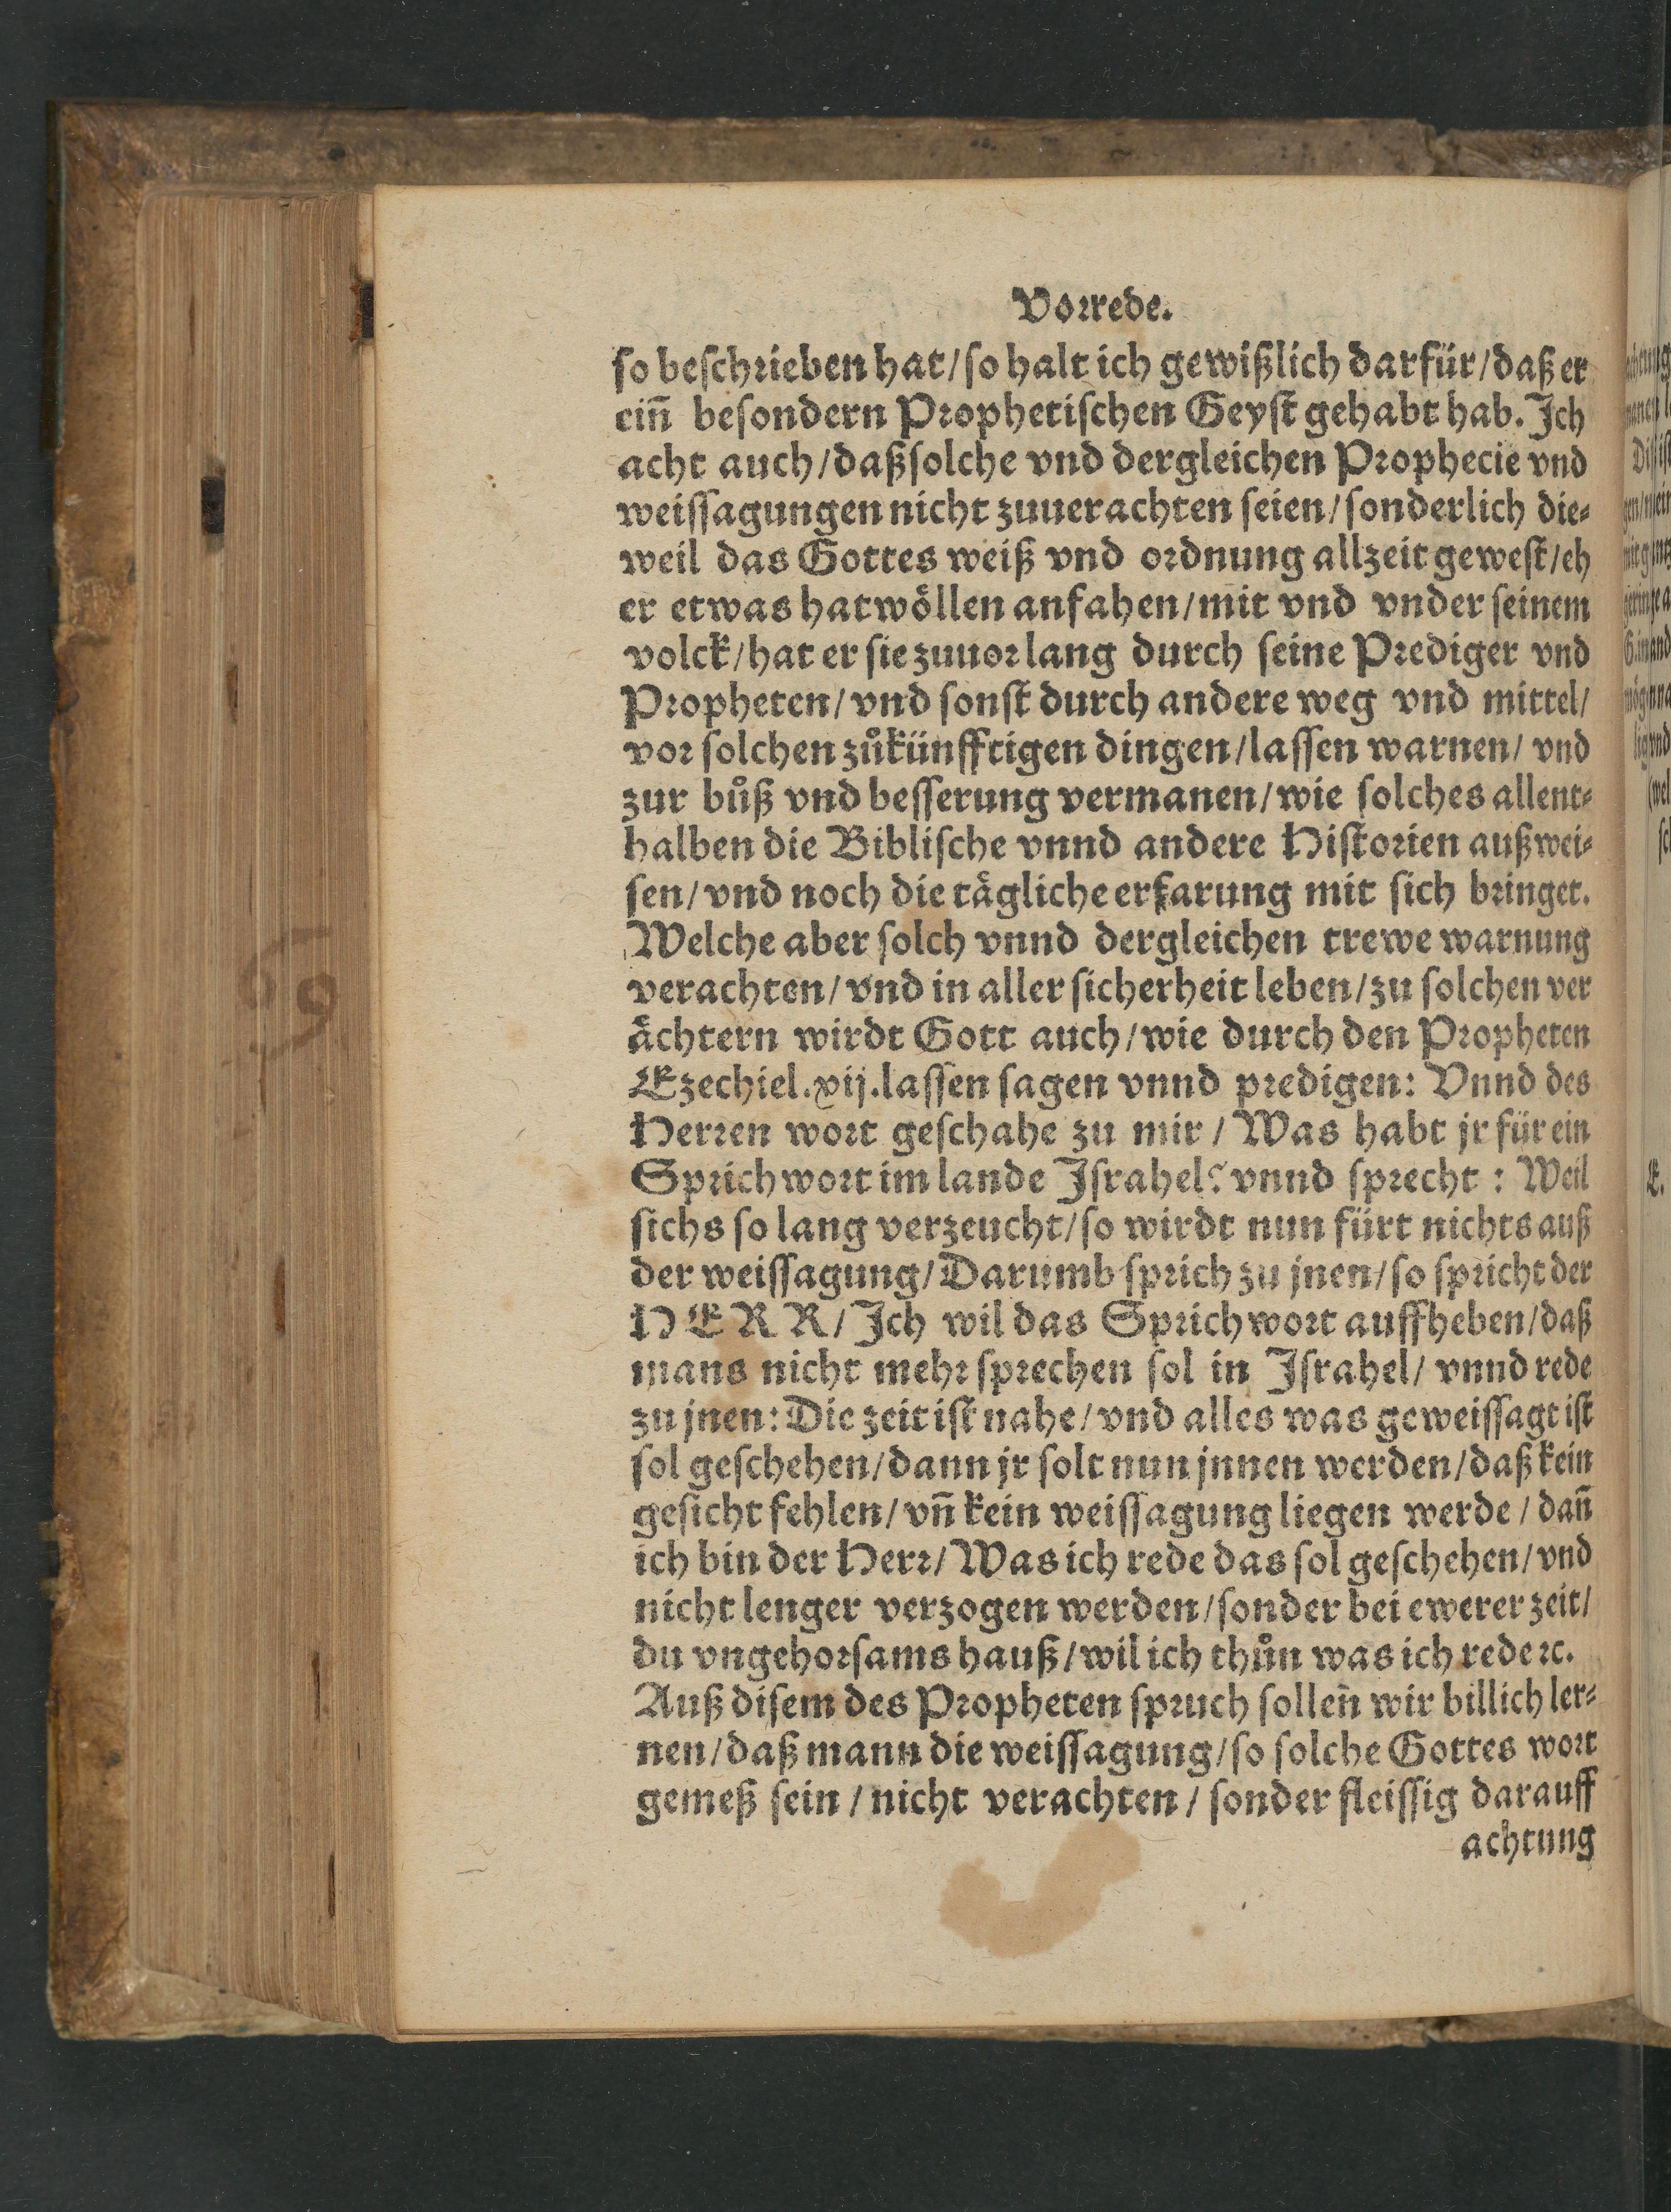 Vorrede.
so beschrieben hat/so halt ich gewißlich darfür/daß er
ein̄ besondern Prophetischen Geyst gehabt hab. Ich
acht auch/daß solche vnd dergleichen Prophecie vnd
weissagungen nicht zuuerachten seien/sonderlich die⸗
weil das Gottes weiß vnd ordnung allzeit gewest/eh
er etwas hat wöllen anfahen/mit vnd vnder seinem
volck/hat er sie zuuor lang durch seine Prediger vnd
Propheten/vnd sonst durch andere weg vnd mittel/
vor solchen zůkünfftigen dingen/lassen warnen/ vnd
zur bůß vnd besserung vermanen/wie solches allent⸗
halben die Biblische vnnd andere Historien außwei⸗
sen/vnd noch die tägliche erfarung mit sich bringet.
Welche aber solch vnnd dergleichen trewe warnung
verachten/vnd in aller sicherheit leben/zu solchen ver
ächtern wirdt Gott auch/wie durch den Propheten
Ezechiel.xij.lassen sagen vnnd predigen: Vnnd des
Herren wort geschahe zu mir/Was habt jr für ein
Sprichwort im lande Israhel? vnnd sprecht: Weil
sichs so lang verzeucht/so wirdt nun fürt nichts auß
der weissagung/Darumb sprich zu jnen/so spricht der
HERR/Ich wil das Sprichwort auffheben/daß
mans nicht mehr sprechen sol in Israhel/ vnnd rede
zu jnen: Die zeit ist nahe/vnd alles was geweissagt ist
sol geschehen/dann jr solt nun jnnen werden/daß kein
gesicht fehlen/vn̄ kein weissagung liegen werde/dan̄
ich bin der Herr/Was ich rede das sol geschehen/vnd
nicht lenger verzogen werden/sonder bei ewerer zeit/
du vngehorsams hauß/wil ich thůn was ich rede ꝛc.
Auß disem des Propheten spruch sollen wir billich ler⸗
nen/daß mann die weissagung/so solche Gottes wort
gemeß sein/nicht verachten/sonder fleissig darauff
achtung
69